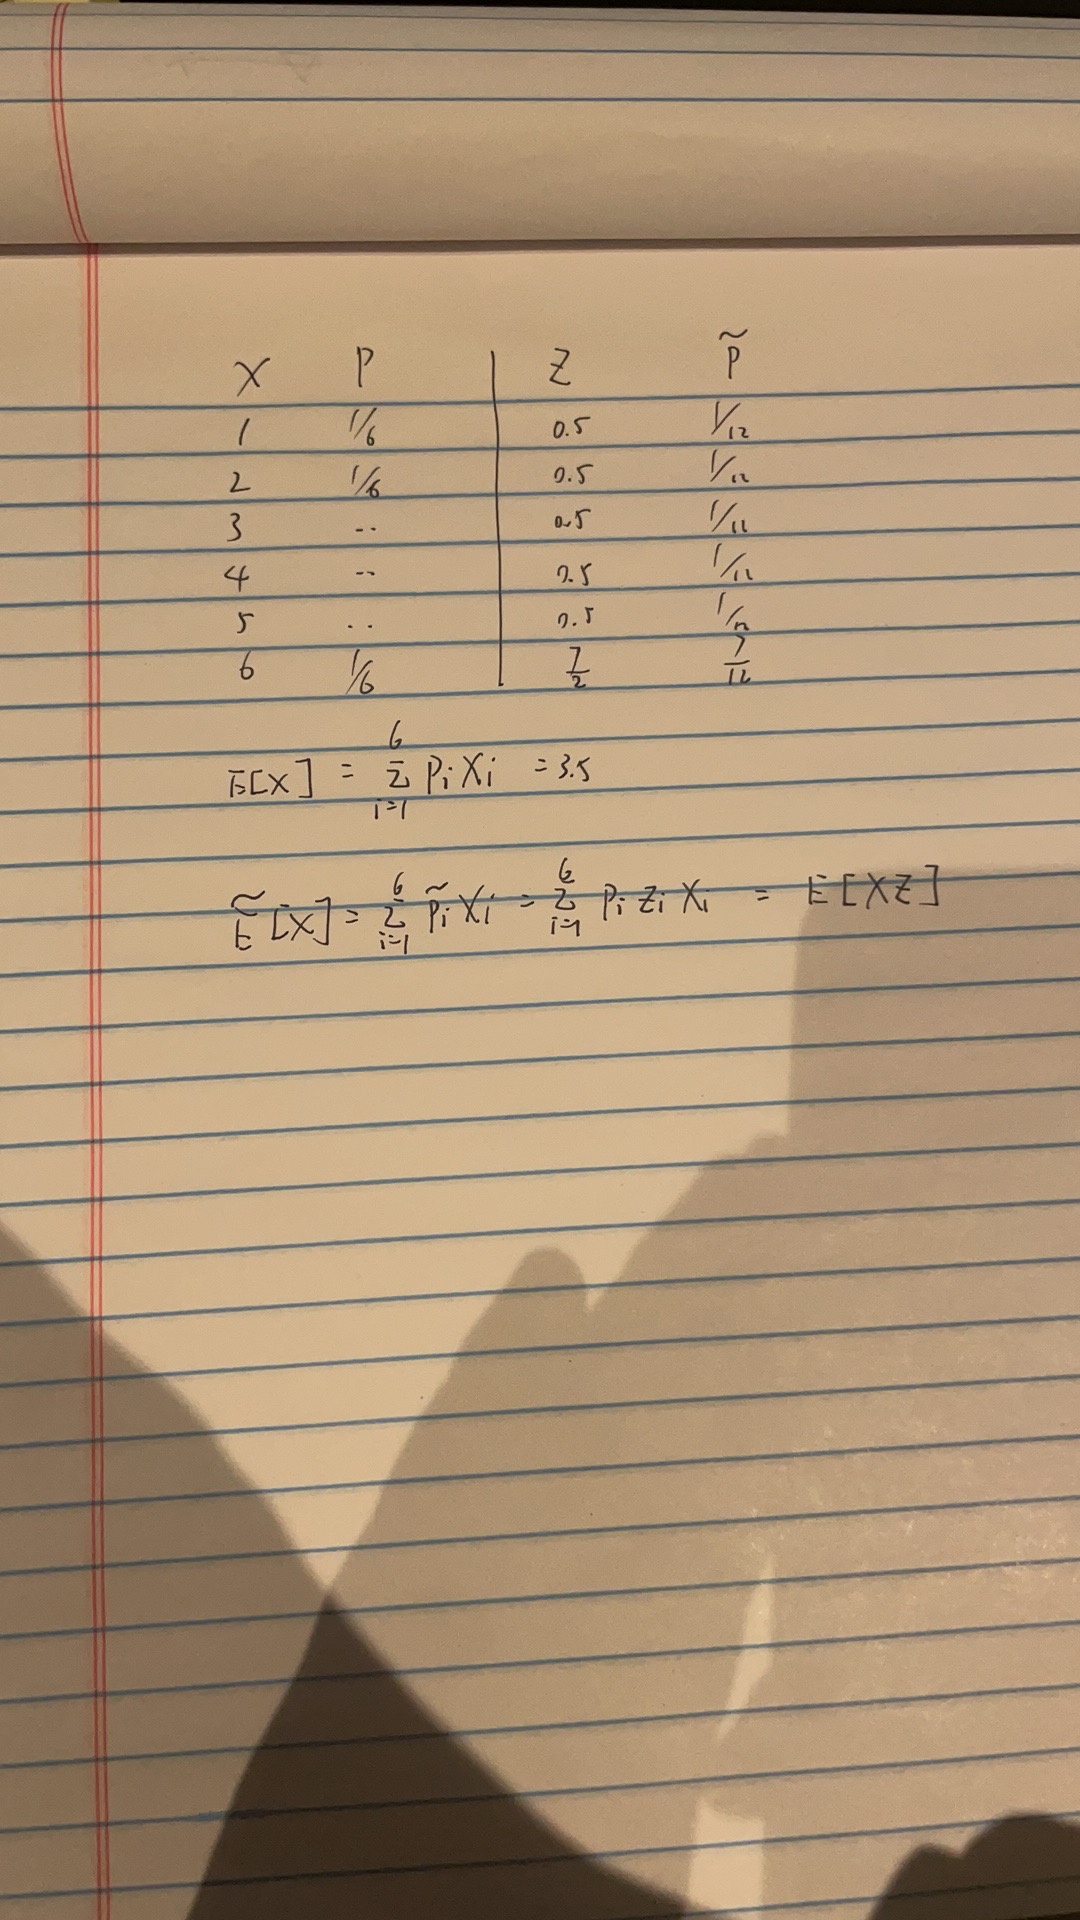 X P Z P̃
1 1/6 0.5 1/12
2 1/6 0.5 1/12
3 .. 0.5 1/12
4 .. 0.5 1/12
5 .. 0.5 1/12
6 1/6 7/2 7/12
E[X] = Σ_{i=1}^{6} P_i X_i = 3.5
Ẽ[X] = Σ_{i=1}^{6} P̃_i X_i = Σ_{i=1}^{6} P_i Z_i X_i = E[XZ]